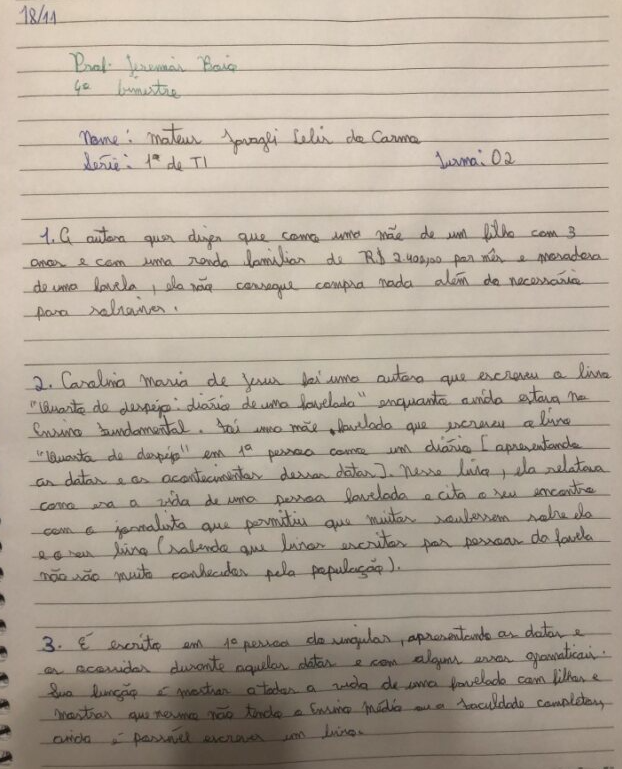 18/11
Prof. Jeremias Baia
4º bimestre
Nome: Mateus Lelis do Carmo
Série: 1ª de TI Turma: 02
1. A autora quer dizer que como uma mãe de um filho com 3
anos e com uma renda familiar de R$ 2.400,00 por mês e moradora
de uma favela, ela não consegue compra nada além do necessário
para sobreviver.
2. Carolina Maria de Jesus foi uma autora que escreveu o livro
"Quarto de despejo: diário de uma favelada" enquanto ainda estava no
Ensino Fundamental. Foi uma mãe favelada que escreveu o livro
"Quarto de despejo" em 1ª pessoa como um diário [apresentando
as datas e os acontecimentos dessas datas]. Nesse livro, ela relatava
como era a vida de uma pessoa favelada e cita o seu encontro
com o jornalista que permitiu que muitos soubessem sobre ela
e o seu livro (sabendo que livros escritos por pessoas da favela
não são muito conhecidos pela população).
3. É escrito em 1ª pessoa do singular, apresentando as datas e
os ocorridos durante aquelas datas e com alguns erros gramaticais.
Sua função é mostrar a todos a vida de uma favelada com filhos e
mostrar que mesmo não tendo o Ensino Médio ou a faculdade completos,
ainda é possível escrever um livro.